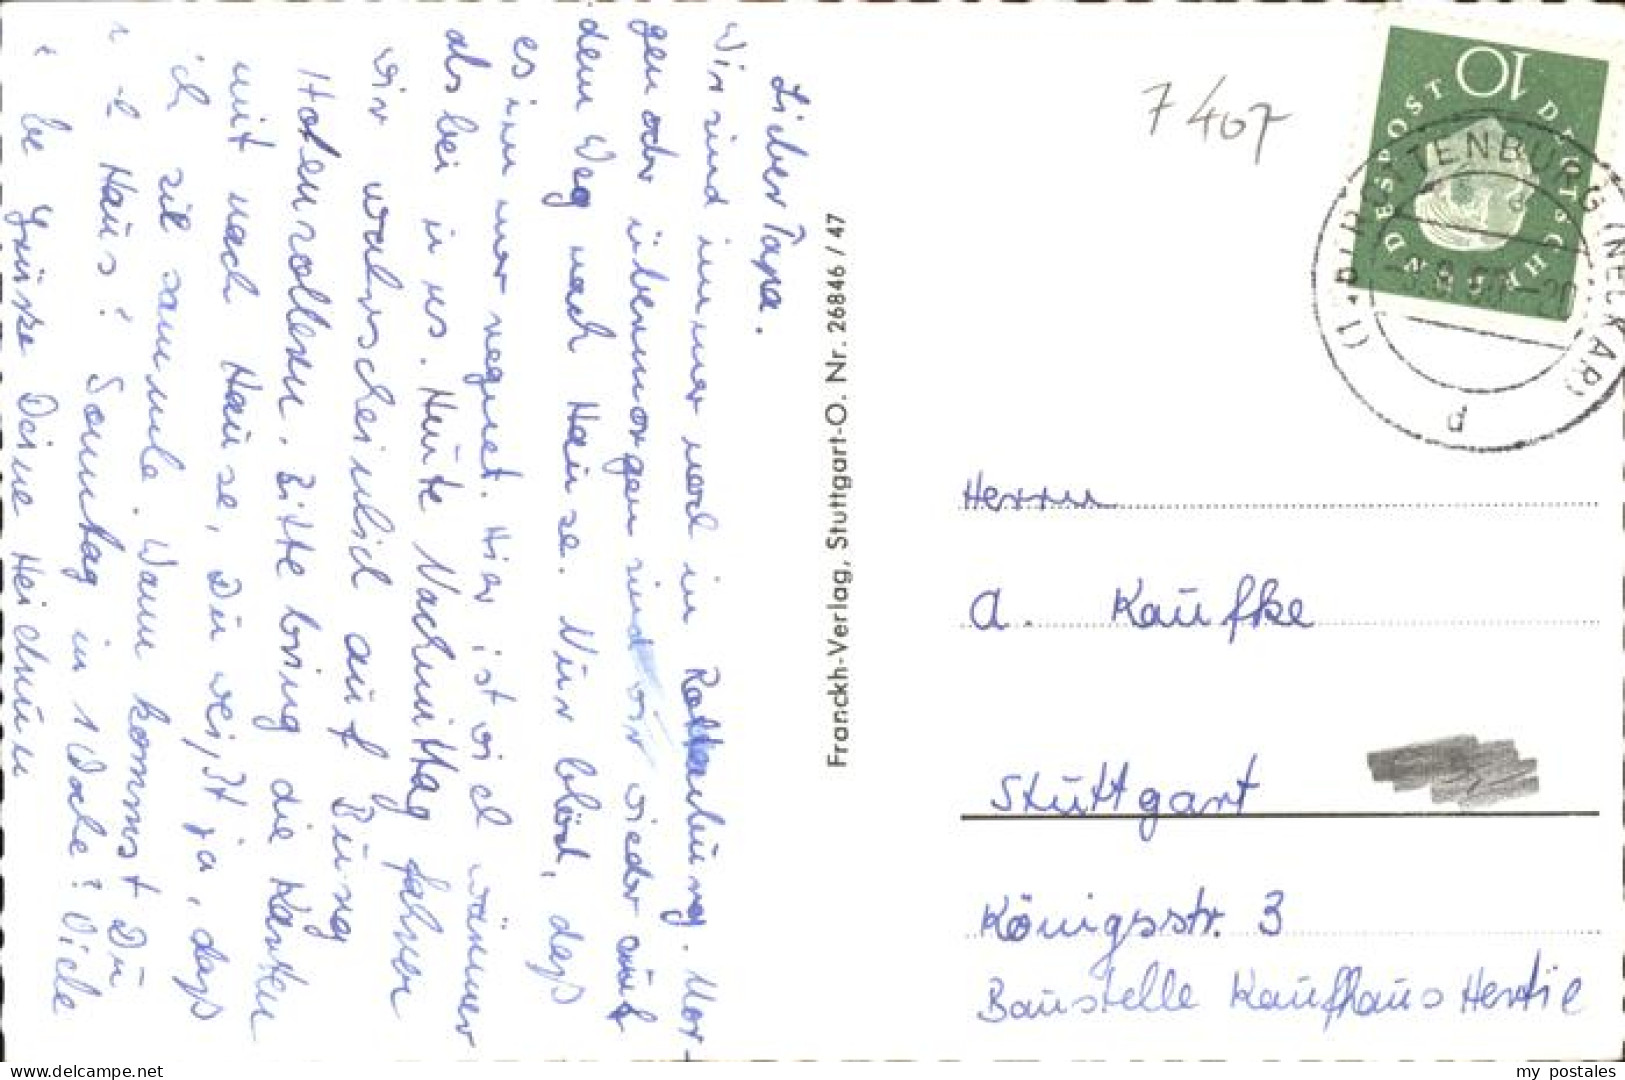 Lieber Papa.
Wir sind immer noch in Rottenburg. Mor-
gen oder übermorgen sind wir wieder auf
dem Weg nach Hause. Nur blöd, daß
es immer regnet. Hier ist viel wärmer
als bei uns. Heute Nachmittag fahren
wir wahrscheinlich auf Burg
Hohenzollern. Bitte bring die Karten
mit nach Hause, Du weißt ja, daß
ich sie sammle. Wann kommst Du
Haus? Sonntag in 1 Woche? Viele
Grüße Deine Heidrun
Franckh-Verlag, Stuttgart-O. Nr. 26846/47
7/407
10
DEUTSCHE BUNDESPOST
ROTTENBURG (NECKAR)
d
Herrn
A. Kaufke
Stuttgart
Königsstr. 3
Baustelle Kaufhaus Hertie
www.delcampe.net
my_postales